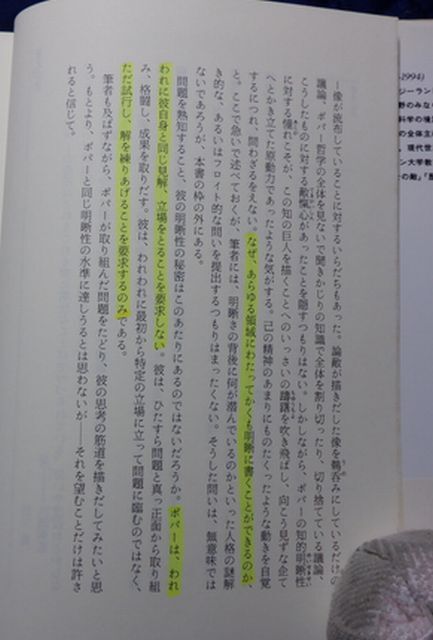 ー像が流布していることに対するいらだちもあった。論敵が描きだした像を鵜呑みにしているだけの
議論、ポパー哲学の全体を見ないで聞きかじりの知識で全体を割り切ったり、切り捨てている議論、
こうしたものに対する敵愾心があったことを隠すつもりはない。しかしながら、ポパーの知的明晰性
に対する憧れこそが、この知の巨人を描くことへのいっさいの躊躇を吹き飛ばし、向こう見ずな企て
へとかき立てた原動力であったような気がする。己の精神のあまりにものたくったような動きを自覚
するにつれ、問わざるをえない。なぜ、あらゆる領域にわたってかくも明晰に書くことができるのか、
と。ここで急いで述べておくが、筆者には、明晰さの背後に何が潜んでいるのかといった人格の謎解
き的な、あるいはフロイト的な問いを提出するつもりはまったくない。そうした問いは、無意味では
ないであろうが、本書の枠の外にある。
問題を熟知すること、彼の明晰性の秘密はこのあたりにあるのではないだろうか。ポパーは、われ
われに彼自身と同じ見解、立場をとることを要求しない。彼は、ひたすら問題と真っ正面から取り組
み、格闘し、成果を取りだす。彼は、われわれに最初から特定の立場に立って問題に臨むのではなく、
ただ試行し、解を練りあげることを要求するのみである。
筆者も及ばずながら、ポパーが取り組んだ問題をたどり、彼の思考の筋道を描きだしてみたいと思
う。もとより、ポパーと同じ明晰性の水準に達しうるとは思わないが――それを望むことだけは許さ
れると信じて。
1994)
ジーラン
野のみな
科学の境
の全体主
、現代世
ン大学教
の敵』『歴